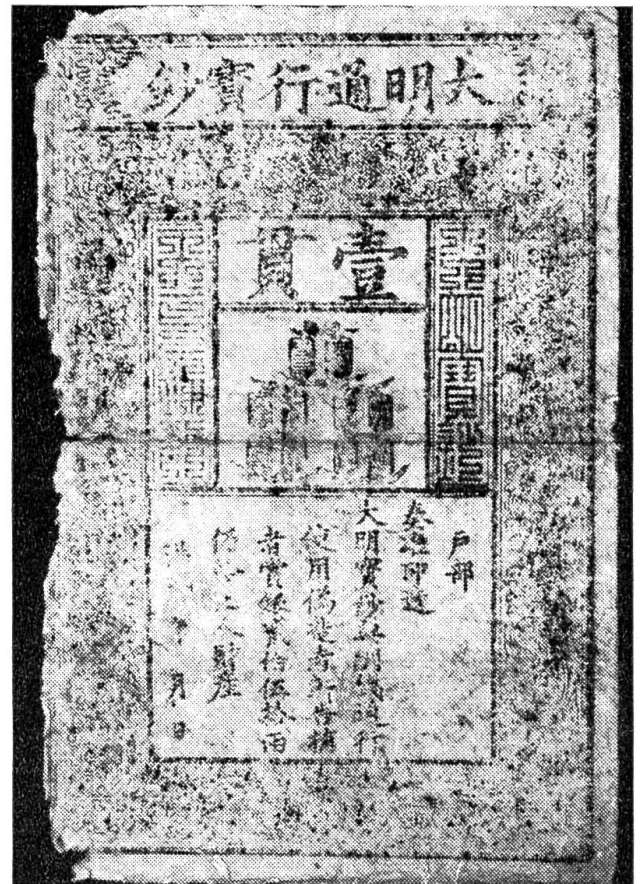 大明通行寶鈔
壹貫
大明寶鈔
天下通行
戶部
奏准印造
大明寶鈔與銅錢通行
使用偽造者斬告捕
者賞銀貳伯伍拾兩
仍給犯人財產
年 月 日